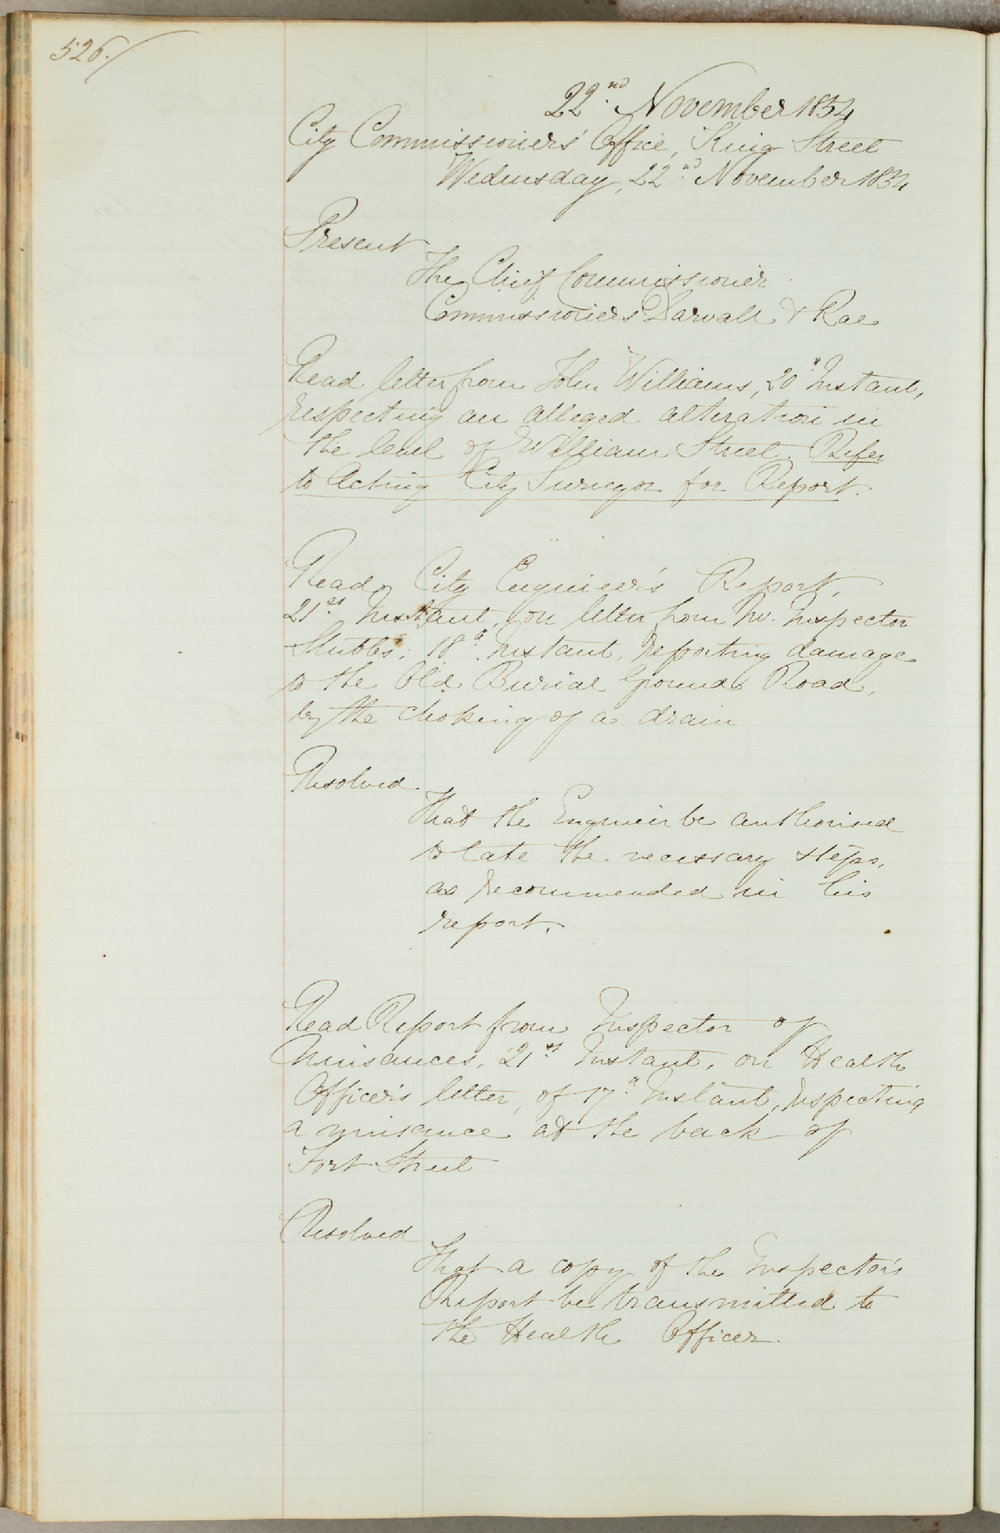 526.
22nd November 1854
City Commissioners' Office, King Street
Wednesday, 22nd November 1854
Present
The Chief Commissioner
Commissioners Darvall & Rae
Read letter from John Williams, 20" Instant,
respecting an alleged alteration in
the level of William Street. Refer
to Acting City Surveyor for Report.
Read City Engineer's Report,
21st Instant, on letter from Mr. Inspector
Stubbs, 18th Instant, reporting damage
to the Old Burial Ground Road,
by the choking of a drain
Resolved.
That the Engineer be authorised
to take the necessary steps,
as recommended in his
report.
Read Report from Inspector of
Nuisances, 21st Instant, on Health
Officer's letter, of 17th Instant, respecting
a nuisance at the back of
Fort Street
Resolved
That a copy of the Inspector's
Report be transmitted to
the Health Officer.